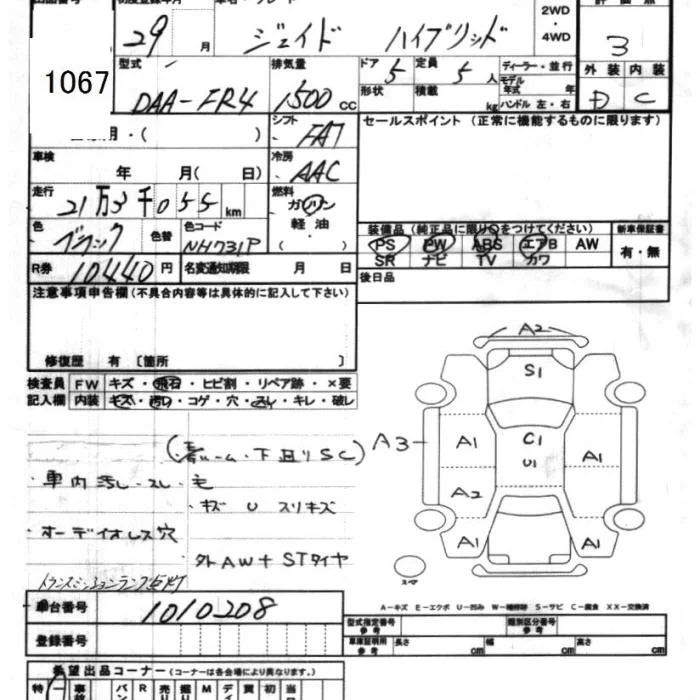 29 月 ジェイド ハイブリッド
2WD
・
4WD
3
1067
型式 排気量 ドア 定員 ディーラー・並行
DAA-FR4 1500 cc 5 5 人 モデル 年式 年
形状 積載 kg ハンドル 左・右
外装 内装
D C
月・( )
シフト FAT
セールスポイント (正常に機能するものに限ります)
車検 年 月( 日)
冷房 AAC
走行 21万3千055 km
燃料 ガソリン
軽油
・( )
色 ブラック 色替 色コード NH731P
装備品 (純正品に限り○をつけてください) 新車保証書
PS PW ABS エアB AW 有・無
SR ナビ TV カワ
R券 10440円 名変通知期限 月 日
後日品
注意事項申告欄 (不具合内容等は具体的に記入して下さい)
修復歴 有 〔箇所 〕
検査員 FW キズ・飛石・ヒビ割・リペア跡・×要
記入欄 内装 キズ・汚れ・コゲ・穴・スレ・キレ・破レ
A2
S1
A3
A1
C1
U1
A1
A2
A1
A1
スマ
下廻りSC)
・車内汚レ・スレ・毛
・キズ U スリキズ
・オーディオレス穴
外AW+STタイヤ
トランスミッションランプ点灯
A-キズ E-エクボ U-凹み W-補修跡 S-サビ C-腐食 XX-交換済
車台番号 1010208
型式指定番号 参考 類別区分番号 参考
登録番号
車庫証明用 参考 長さ cm 幅 cm 高さ cm
希望出品コーナー (コーナーは各会場により異なります。)